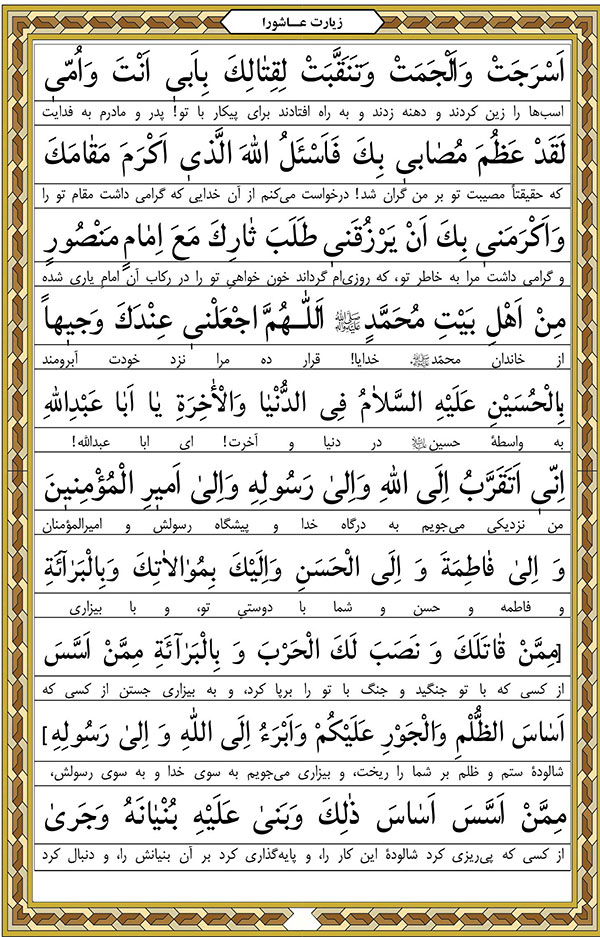 زیارت عـاشورا
اَسْرَجَتْ وَاَلْجَمَتْ وَتَنَقَّبَتْ لِقِتٰالِكَ بِاَبى اَنْتَ وَاُمّى
اسب‌ها را زین کردند و دهنه زدند و به راه افتادند برای پیکار با تو! پدر و مادرم به فدایت
لَقَدْ عَظُمَ مُصٰابى بِكَ فَاَسْئَلُ اللهَ الَّذى اَكْرَمَ مَقٰامَكَ
که حقیقتاً مصیبت تو بر من گران شد! درخواست می‌کنم از آن خدایی که گرامی داشت مقام تو را
وَاَكْرَمَنى بِكَ اَنْ يَرْزُقَنى طَلَبَ ثٰارِكَ مَعَ اِمٰامٍ مَنْصُورٍ
و گرامی داشت مرا به خاطر تو، که روزی‌ام گرداند خون خواهی تو را در رکاب آن امام یاری شده
مِنْ اَهْلِ بَيْتِ مُحَمَّدٍ ﷺ اَللّٰـهُمَّ اجْعَلْنى عِنْدَكَ وَجيهاً
از خاندان محمّد ﷺ. خدایا! قرار ده مرا نزد خودت آبرومند
بِالْحُسَيْنِ عَلَيْهِ السَّلاٰمُ فِى الدُّنْيٰا وَالْاٰخِرَةِ يٰا اَبٰا عَبْدِاللهِ
به واسطهٔ حسین در دنیا و آخرت! ای ابا عبدالله!
اِنّى اَتَقَرَّبُ اِلَى اللهِ وَاِلىٰ رَسُولِهِ وَاِلىٰ اَميرِ الْمُؤْمِنينَ
من نزدیکی می‌جویم به درگاه خدا و پیشگاه رسولش و امیرالمؤمنان
وَ اِلىٰ فٰاطِمَةَ وَ اِلَى الْحَسَنِ وَاِلَيْكَ بِمُوٰالاٰتِكَ وَبِالْبَرٰآئَةِ
و فاطمه و حسن و شما با دوستیِ تو، و با بیزاری
[مِمَّنْ قٰاتَلَكَ وَ نَصَبَ لَكَ الْحَرْبَ وَ بِالْبَرٰآئَةِ مِمَّنْ اَسَّسَ
از کسی که با تو جنگید و جنگ با تو را برپا کرد، و به بیزاری جستن از کسی که
اَسٰاسَ الظُّلْمِ وَالْجَوْرِ عَلَيْكُمْ وَاَبْرَءُ اِلَى اللّٰهِ وَ اِلىٰ رَسُولِهِ]
شالودهٔ ستم و ظلم بر شما را ریخت، و بیزاری می‌جویم به سوی خدا و به سوی رسولش،
مِمَّنْ اَسَّسَ اَسٰاسَ ذٰلِكَ وَبَنىٰ عَلَيْهِ بُنْيٰانَهُ وَجَرىٰ
از کسی که پی‌ریزی کرد شالودهٔ این کار را، و پایه‌گذاری کرد بر آن بنیانش را، و دنبال کرد